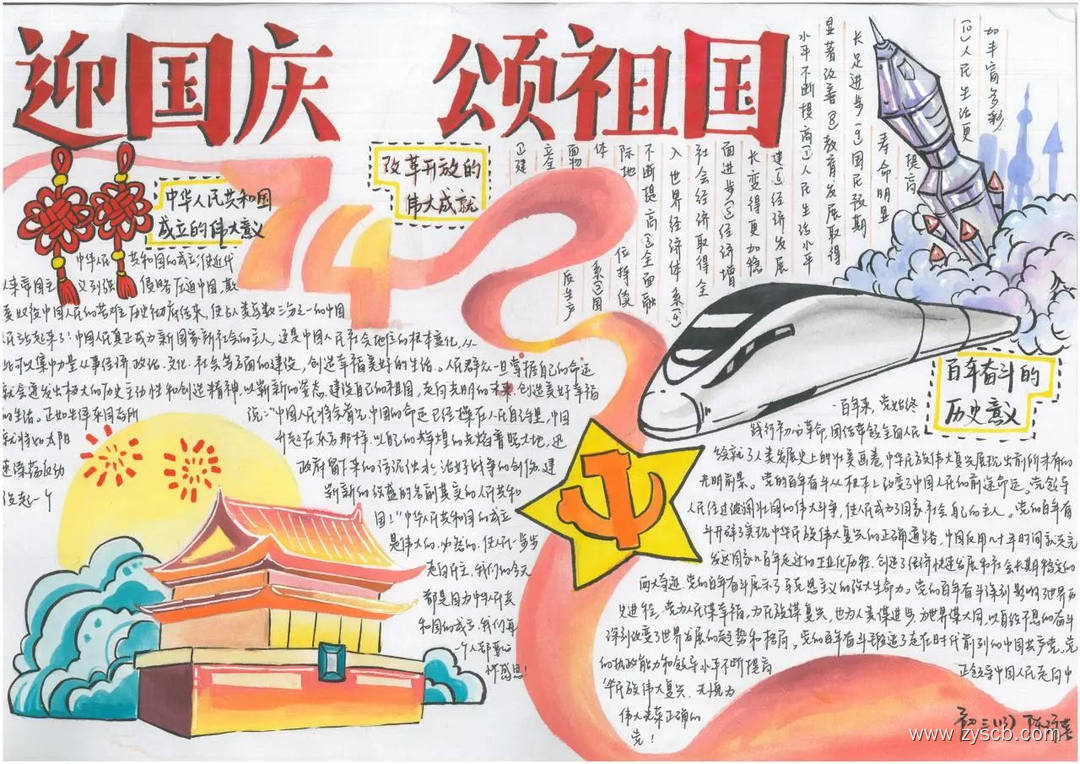 迎国庆 颂祖国
74
中华人民共和国
成立的伟大意义
改革开放的
伟大成就
百年奋斗的
历史意义
中华人民共和国的成立,使近代
中国人民真正成为新国家新社会的主人,这是中国人民社会地位的根本变化,从
此可以集中力量从事经济、政治、文化、社会等方面的建设,创造幸福美好的生活。人民群众一旦掌握自己的命运
就会迸发出极大的历史主动性和创造精神,以崭新的姿态,建设自己的祖国,走向光明的未来,创造美好幸福
的生活。
说:"中国人民将会看见,中国的命运已经操在人民自己手里,中国
就将如太阳
升起在东方那样,以自己的辉煌的光焰普照大地,迅
速荡涤反动
政府留下来的污泥浊水,治好战争的创伤,建
设起一个
崭新的强盛的名副其实的人民共和
国!"中华人民共和国的成立
是伟大的,
走向民主,我们的今天
都是因为中华人民共
和国的成立,我们每
一个人都要心
怀感恩!
加丰富多彩
(10)人民生活更
寿命明显
提高
长足进步(9)国民预期
显著改善(8)教育发展取得
水平不断提高(7)人民生活水平
建(6)经济发展
长变得更加稳
面进步(5)经济增
社会经济取得全
入世界经济体系(4)
不断提高(3)全面融
际地
位持续
系(2)国
体
一百年来,党始终
践行初心使命,团结带领全国人民
绘就了人类发展史上的壮美画卷,中华民族伟大复兴展现出前所未有的
光明前景。党的百年奋斗从根本上改变了中国人民的前途命运。党领导
人民经过波澜壮阔的伟大斗争,使人民成为了国家、社会、自己的主人。党的百年奋
斗开辟了实现中华民族伟大复兴的正确道路,中国仅用几十年时间就走完
发达国家几百年走过的工业化历程,创造了经济快速发展和社会长期稳定的
两大奇迹。党的百年奋斗展示了马克思主义的强大生命力。党的百年奋斗深刻影响了世界历
史进程,党为人民谋幸福、为民族谋复兴,也为人类谋进步、为世界谋大同,以自强不息的奋斗
深刻改变了世界发展的趋势和格局。党的百年奋斗锻造了走在时代前列的中国共产党,党
的执政能力和领导水平不断提高
正领导中国人民走向中
华民族伟大复兴,无愧为
伟大光荣正确的
党!
www.zyscb.com